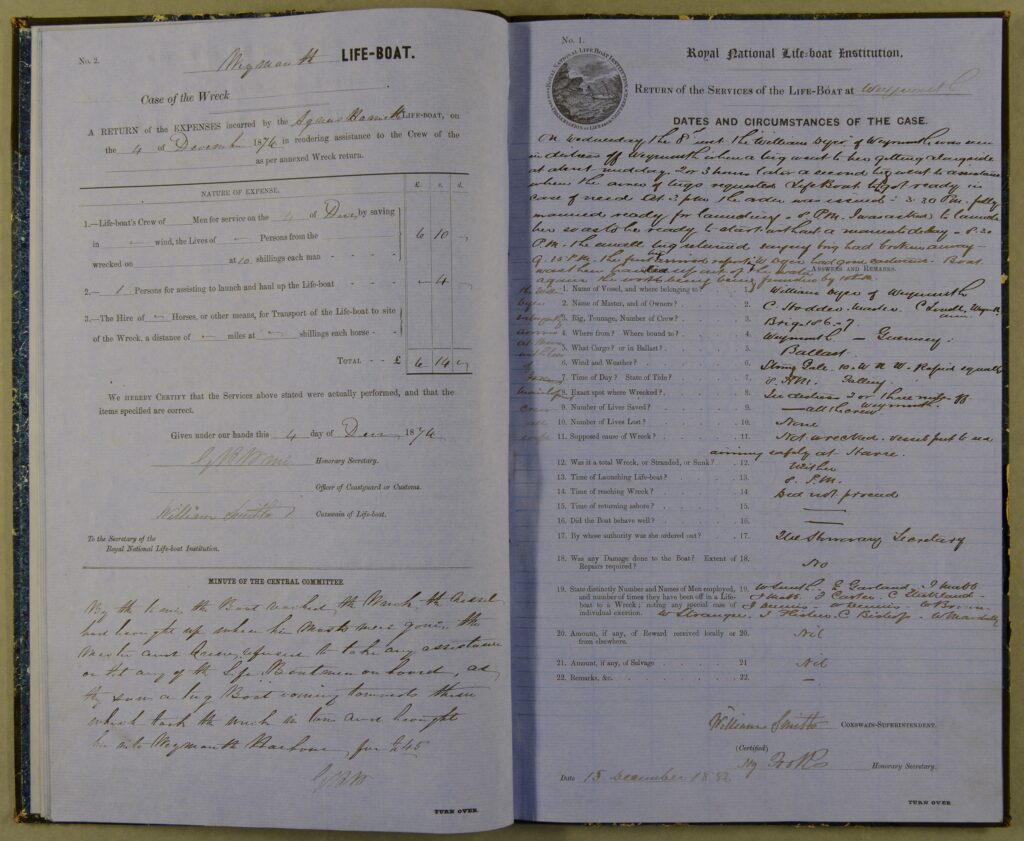 No. 2.
Weymouth LIFE-BOAT.
Case of the Wreck
A RETURN of the EXPENSES incurred by the Agnes Harriet LIFE-BOAT, on
the 4 of December 1876 in rendering assistance to the Crew of the
as per annexed Wreck return.
NATURE OF EXPENSE. £. s. d.
1.—Life-boat's Crew of Men for service on the 4 of Dec, by saving
in wind, the Lives of — Persons from the
wrecked on at 10 shillings each man - - - 6 10 -
2.— 1 Persons for assisting to launch and haul up the Life-boat - - - 4 -
3.—The Hire of — Horses, or other means, for Transport of the Life-boat to site
of the Wreck, a distance of — miles at — shillings each horse - -
TOTAL - - £ 6 14 -
WE HEREBY CERTIFY that the Services above stated were actually performed, and that the
items specified are correct.
Given under our hands this 4 day of Decr, 1876
Honorary Secretary.
Officer of Coastguard or Customs.
William Smith Coxswain of Life-boat.
To the Secretary of the
Royal National Life-boat Institution.
MINUTE OF THE CENTRAL COMMITTEE.
By the time the Boat reached the Wreck, the vessel
had brought up when his Masts were gone, the
Master and Crew, refused to take any assistance
or let any of the Life Boatmen on board, as
they saw a tug Boat coming towards them
which took the wreck in tow and brought
her into Weymouth Harbour, for £45
TURN OVER.
No. 1.
Royal National Life-boat Institution.
RETURN OF THE SERVICES OF THE LIFE-BOAT AT Weymouth
DATES AND CIRCUMSTANCES OF THE CASE.
On Wednesday the 8th inst the William Dyer of Weymouth was seen
in distress off Weymouth when a tug went to her getting alongside
at about midday. 2 or 3 hours later a second tug went to assistance
when the owner of tugs requested Life Boat to get ready in
case of need. At 3 pm the order was issued: 3.30 P.M. fully
manned ready for launching. 8 P.M. I was asked to launch
her so as to be ready to start without a moments delay - 8.30
P.M. the small tug returned saying brig had broken away -
9.15 P.M. the first tug arrived reporting W Dyer had gone eastward. Boat
was then hauled up out of the water
ANSWERS AND REMARKS.
1. Name of Vessel, and where belonging to? 1. William Dyer of Weymouth
2. Name of Master, and of Owners? 2. C Hodder Master
3. Rig, Tonnage, Number of Crew? 3. Brig 186 - 7
4. Where from? Where bound to? 4. Weymouth - Guernsey.
5. What Cargo? or in Ballast? 5. Ballast.
6. Wind and Weather? 6. Strong Gale. W N W. Rapid squalls
7. Time of Day? State of Tide? 7. 8 P.M. Falling
8. Exact spot where Wrecked? 8. In distress 2 or three miles off Weymouth.
9. Number of Lives Saved? 9. — all the crew
10. Number of Lives Lost? 10. None
11. Supposed cause of Wreck? 11. Not wrecked. vessel put to sea
arriving safely at Havre.
12. Was it a total Wreck, or Stranded, or Sunk? 12. Neither
13. Time of Launching Life-boat? 13. 8. P.M.
14. Time of reaching Wreck? 14. Did not proceed
15. Time of returning ashore? 15. —
16. Did the Boat behave well? 16. —
17. By whose authority was she ordered out? 17. The Honorary Secretary
18. Was any Damage done to the Boat? Extent of 18. No
Repairs required?
19. State distinctly Number and Names of Men employed, 19. W Smith. E Garland. J Mabb
and number of times they have been off in a Life- J Carter
boat to a Wreck; noting any special case of W Brown
individual exertion. W Stranger. C Bishop.
20. Amount, if any, of Reward received locally or 20. Nil
from elsewhere.
21. Amount, if any, of Salvage 21 Nil
22. Remarks, &c. 22. —
William Smith COXSWAIN-SUPERINTENDENT.
(Certified)
Honorary Secretary.
Date 15 December 1886
TURN OVER